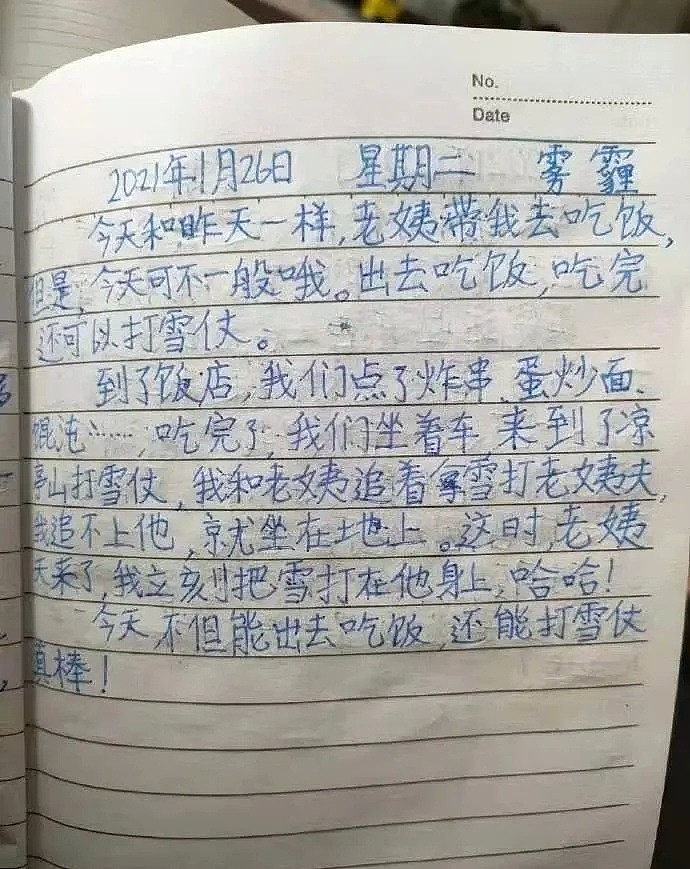 No.
Date
2021年1月26日 星期二 雾霾
今天和昨天一样,老姨带我去吃饭,
但是,今天可不一般哦。出去吃饭,吃完
还可以打雪仗。
到了饭店,我们点了炸串、蛋炒面、
馄沌……,吃完了,我们坐着车来到了凉
亭山打雪仗,我和老姨追着拿雪打老姨夫,
我追不上他,就坐在地上。这时,老姨
夫来了,我立刻把雪打在他身上,哈哈!
今天不但能出去吃饭,还能打雪仗
真棒!